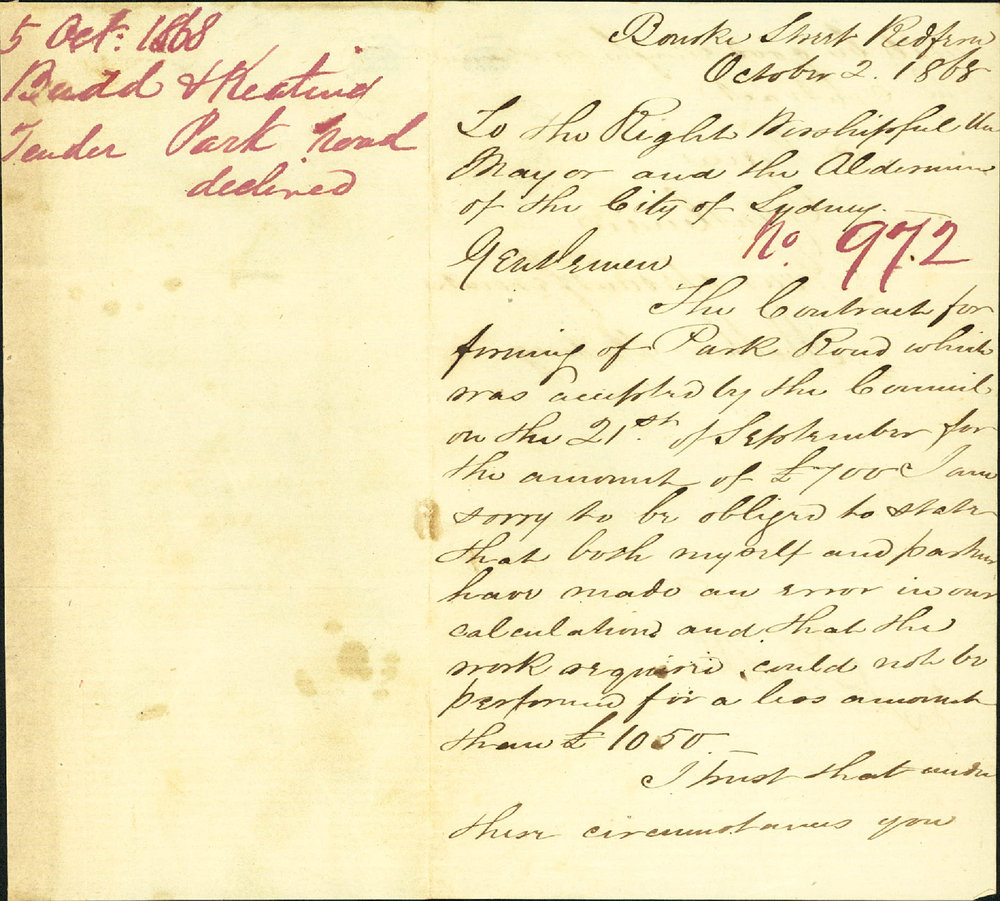 5 Oct: 1868
Budd & Keating
Tender Park road
declined
Bourke Street Redfern
October 2. 1868
To the Right Worshipful the
Mayor and the Aldermen
of the City of Sydney
No 972
Gentlemen
The Contract for
forming of Park Road which
was accepted by the Council
on the 21st of September for
the amount of £700 I am
sorry to be obliged to state
that both myself and partner
have made an error in our
calculations and that the
work required could not be
performed for a less amount
than £1050
I trust that under
these circumstances you